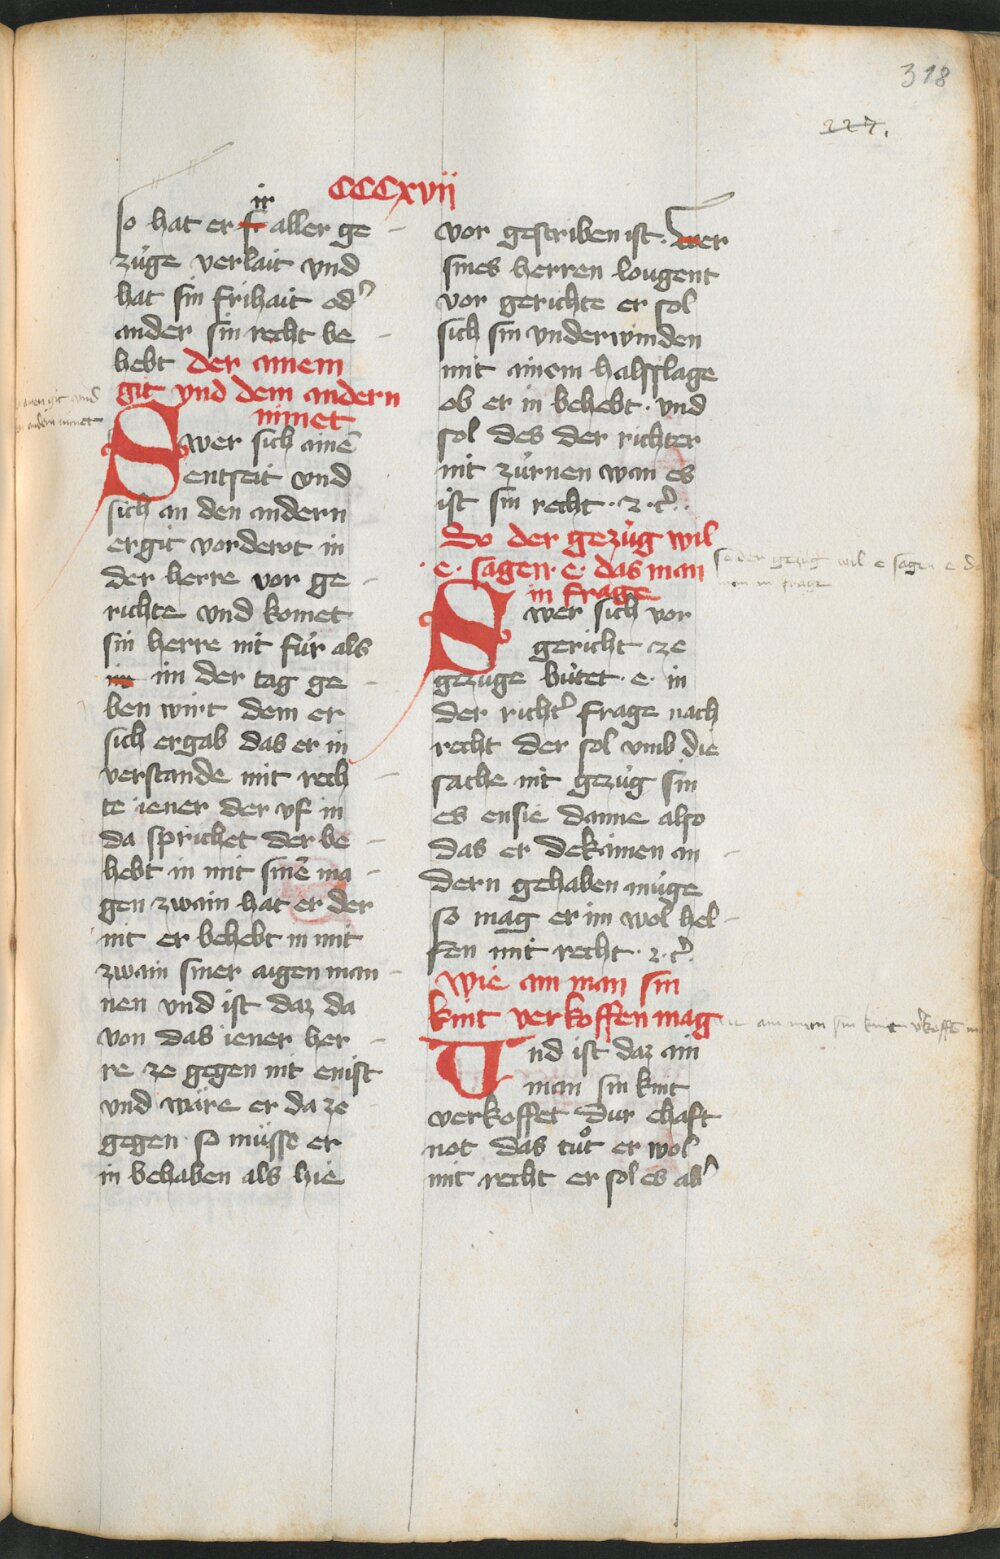 318
227.
CCCxvii
so hat er ir aller ge
zùge verlait vnd
hat sin frihait od᾽
ander sin recht be
hebt der ainem
git vnd dem andern
nimet
Swer sich ainē
entseit vnd
sich an den andern
ergit vordert in
der herre vor ge
richte vnd komet
sin herre nit fùr als
im in der tag ge
ben wirt dem er
sich ergab das er in
verstande mit rech
te iener der vf in
da sprichet der be
hebt in mit sinē ma
gen zwain hat er der
nit er behebt in mit
zwain siner aigen man
nen vnd ist daz da
von das iener her
re ze gegen nit enist
vnd wäre er da ze
gegen so mùsse er
in behaben als hie
vor gescriben ist. wer
sines herren lougent
vor gerichte er sol
sich sin vnderwinden
mit ainem halsslage
ob er in behebt. vnd
sol des der richter
nit zùrnen wan es
ist sin recht. z. c᾽.
So der gezùg wil
.e. sagen .e. das man
in frage
Swer sich vor
gericht ze
gezuge bùtet .e. in
der richt᾽ frage nach
recht der sol vmb die
sache nit gezùg sin
es ensie danne also
das er dekainen an
dern gehaben mùge
so mag er im wol hel
fen mit recht. z. c᾽.
wie ain man sin
kint verkoffen mag
Vnd ist daz ain
man sin kint
verkoffet dur ehaft
not das tuͦt er wol
mit recht er sol es ab᾽
git vnd
andern nimet
so der gezùg wil e sagen e da
man in frage
ain man sin kint v᾽koffē